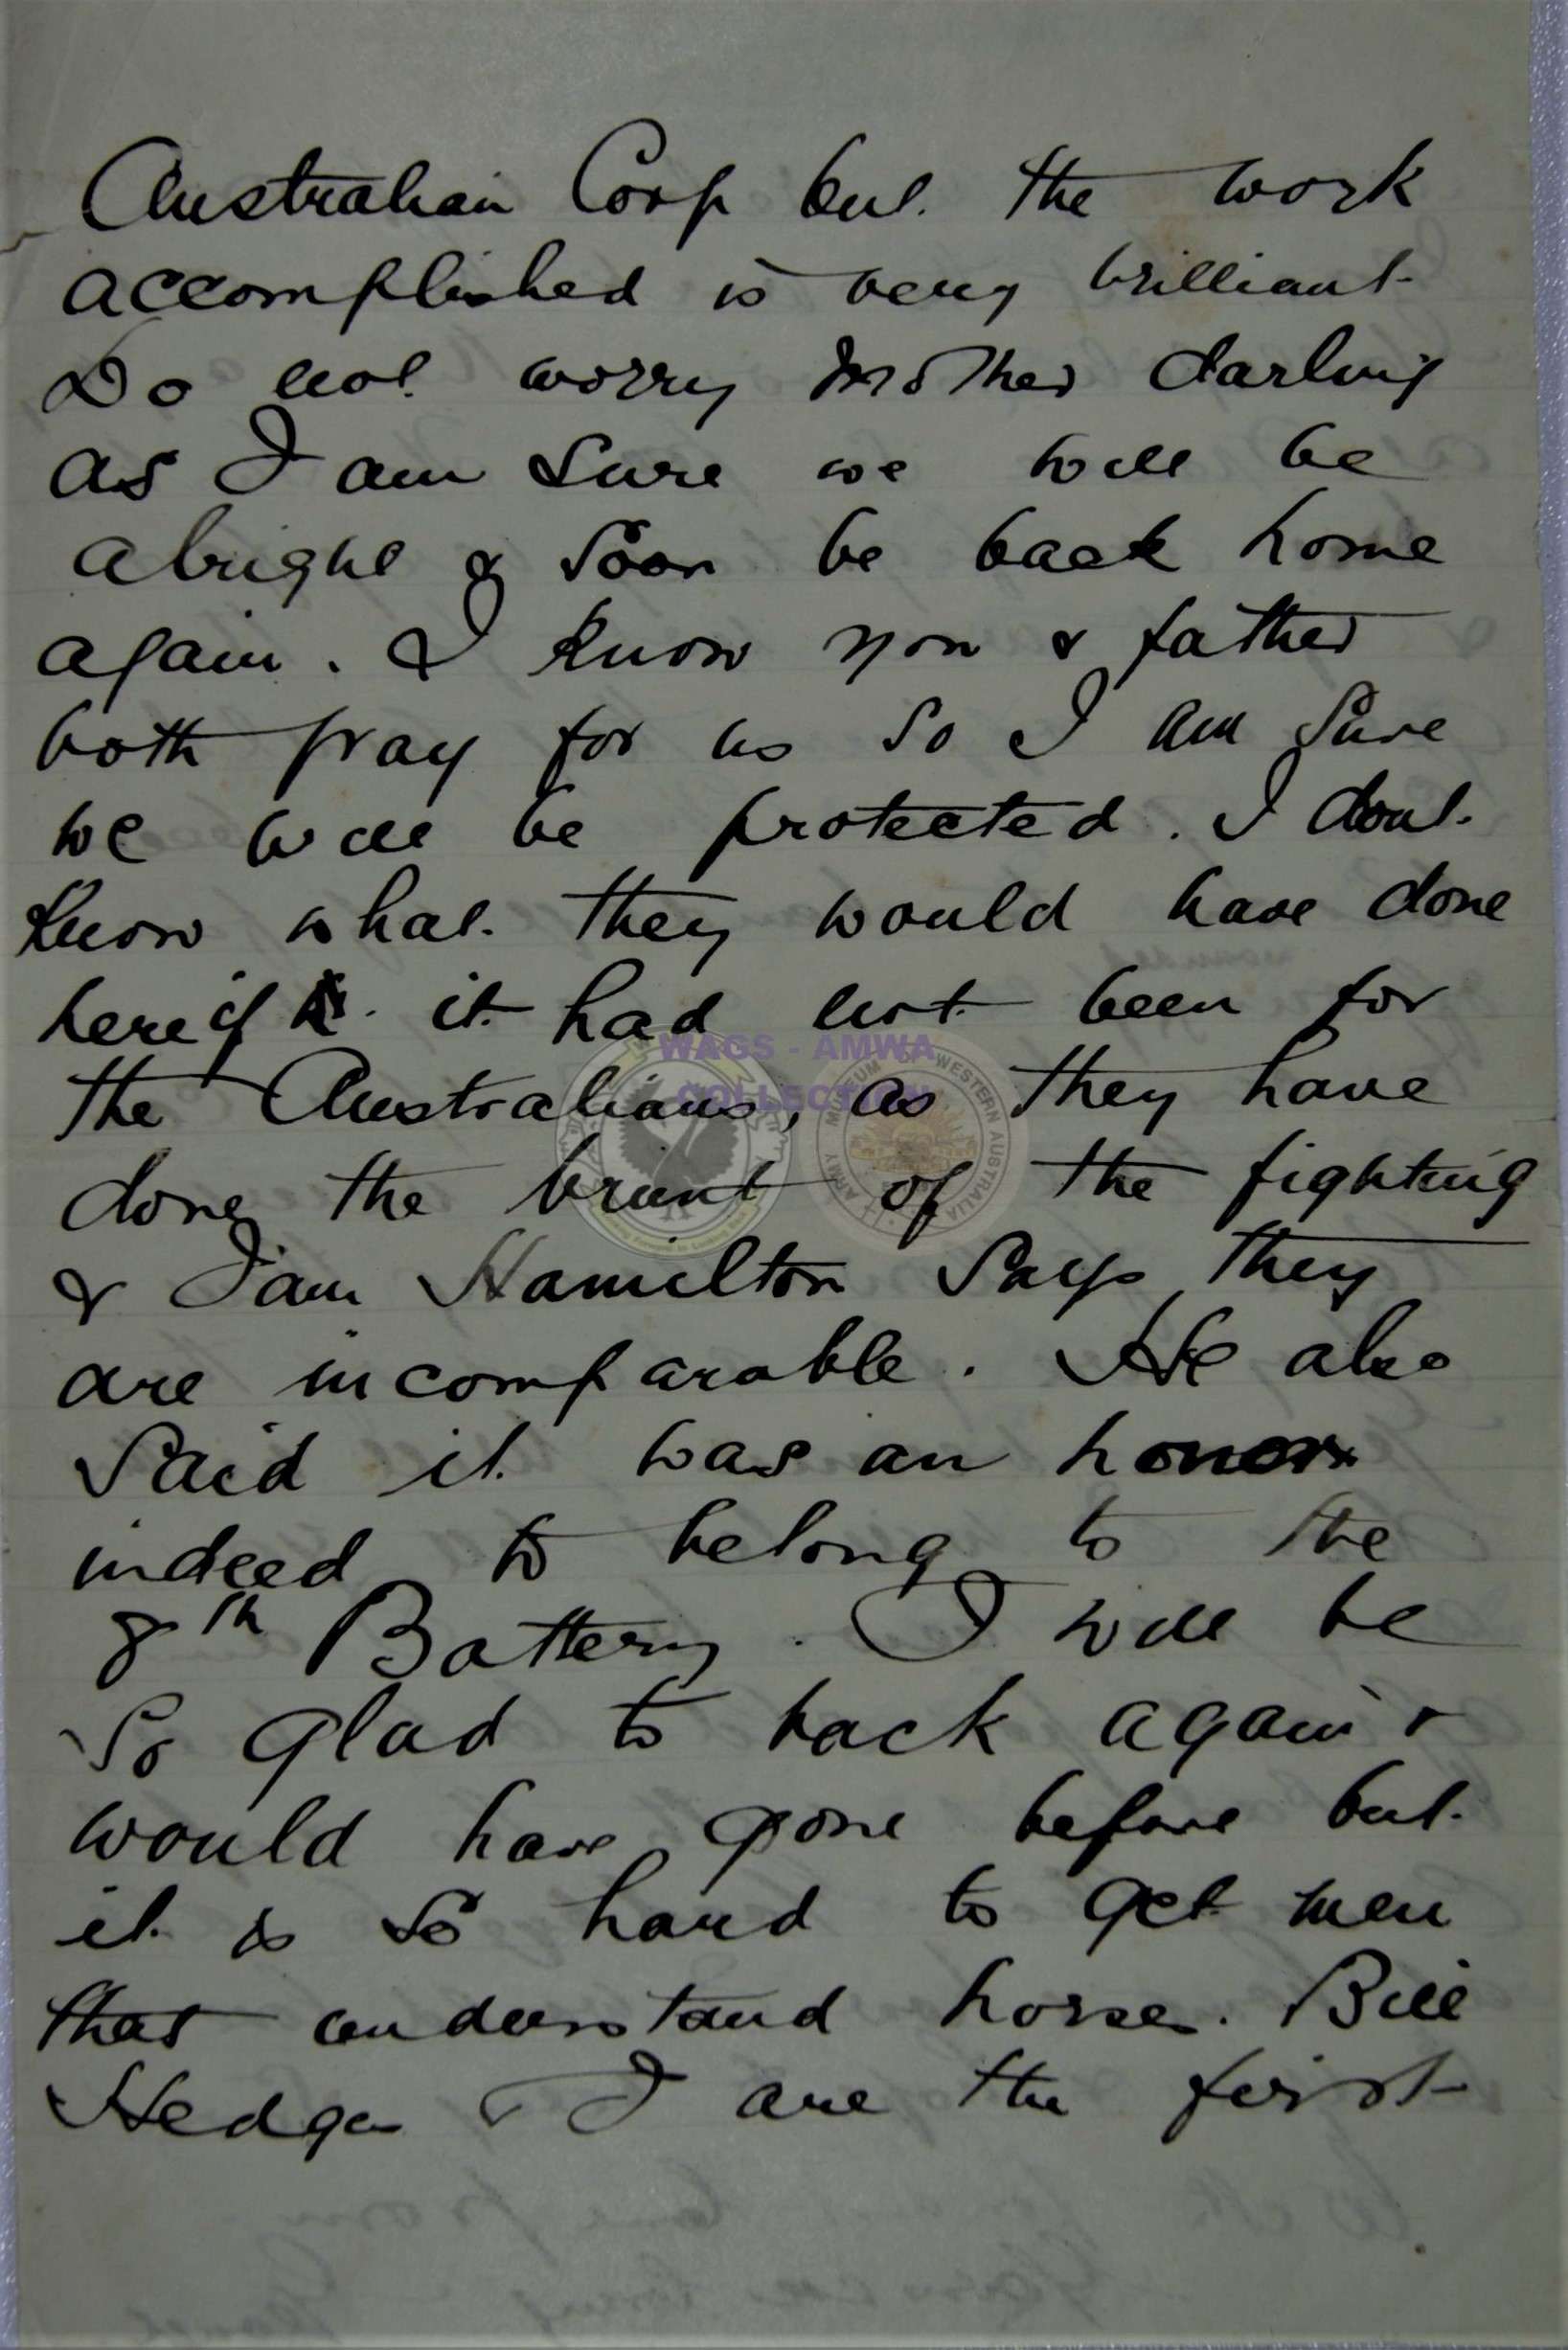 Australian Corp but the work
accomplished is very brilliant
Do not worry Mother darling
as I am sure we will be
alright & soon be back home
again. I know you & father
both pray for us so I am sure
we will be protected. I dont
know what they would have done
here if it had not been for
the Australians, as they have
done the brunt of the fighting
& Ian Hamilton says they
are incomparable. He also
said it was an honor
indeed to belong to the
8th Battery. I will be
so glad to back again &
would have gone before but
it is so hard to get men
that understand horses. Bill
Hedges & I are the first
WAGS - AMWA
COLLECTION
ARMY MUSEUM OF WESTERN AUSTRALIA